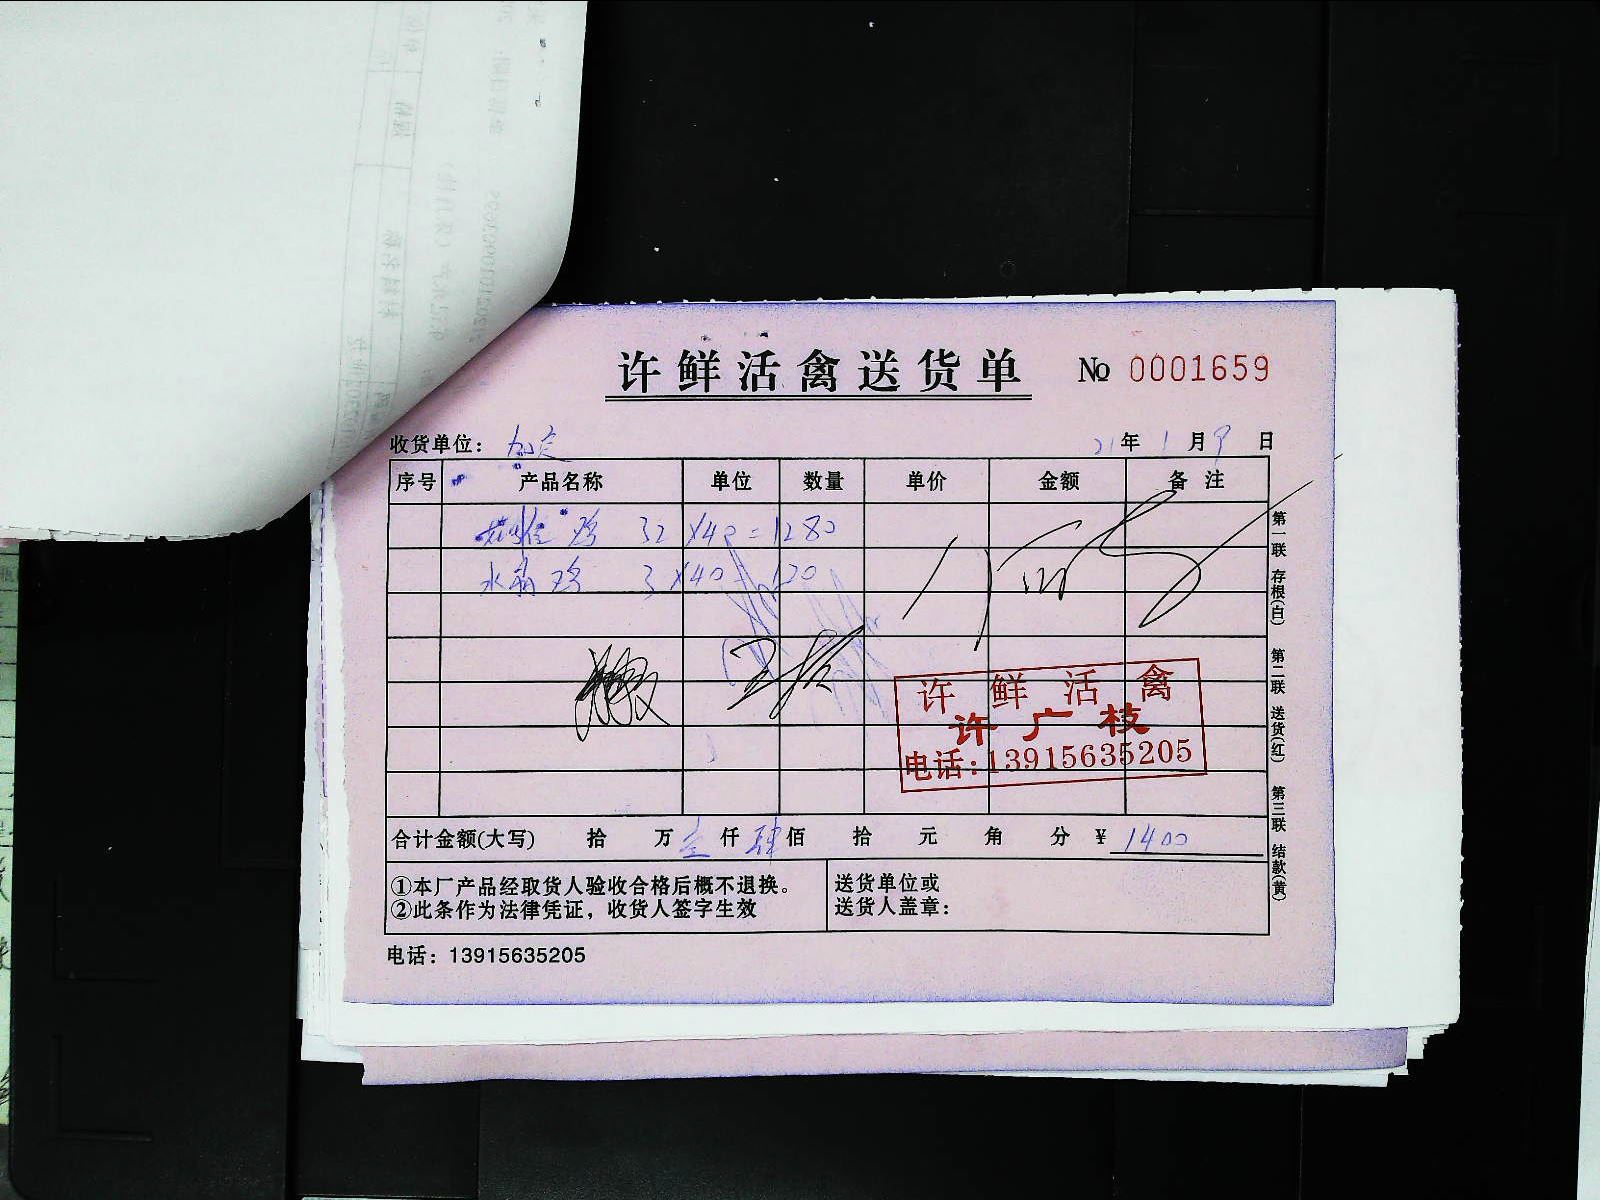 许鲜活禽送货单 № 0001659
收货单位： 加定 21年 1月 9日
序号 产品名称 单位 数量 单价 金额 备注
鸡 32×40=1280
水 鸡 3×40=120
许鲜活禽
许广枝
电话:13915635205
合计金额(大写) 拾 万 壹仟 肆佰 拾 元 角 分 ¥ 1400
①本厂产品经取货人验收合格后概不退换。
②此条作为法律凭证，收货人签字生效
送货单位或
送货人盖章：
电话：13915635205
第一联 存根(白)
第二联 送货(红)
第三联 结款(黄)